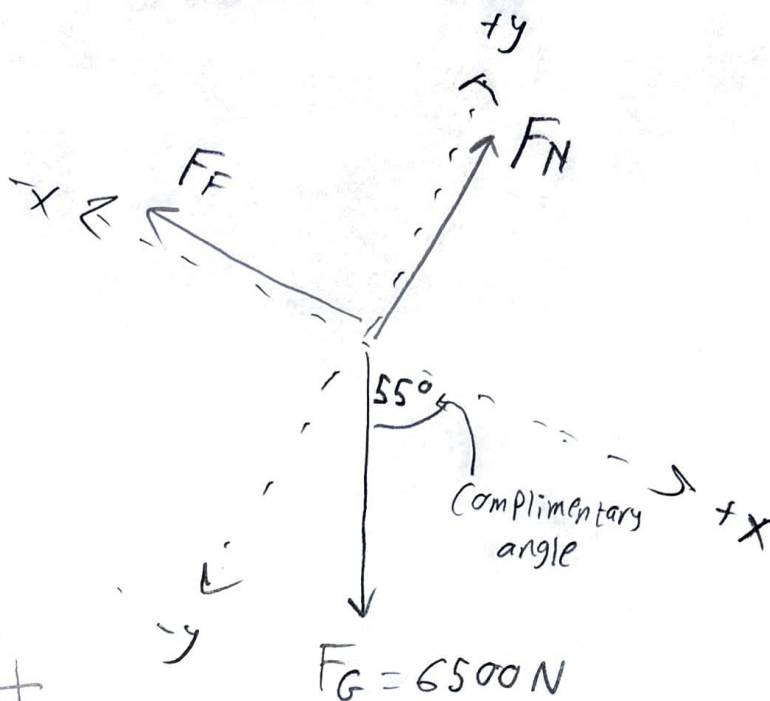 +y
FN
FF
-x
55°
Complimentary
angle
+x
-y
FG = 6500N